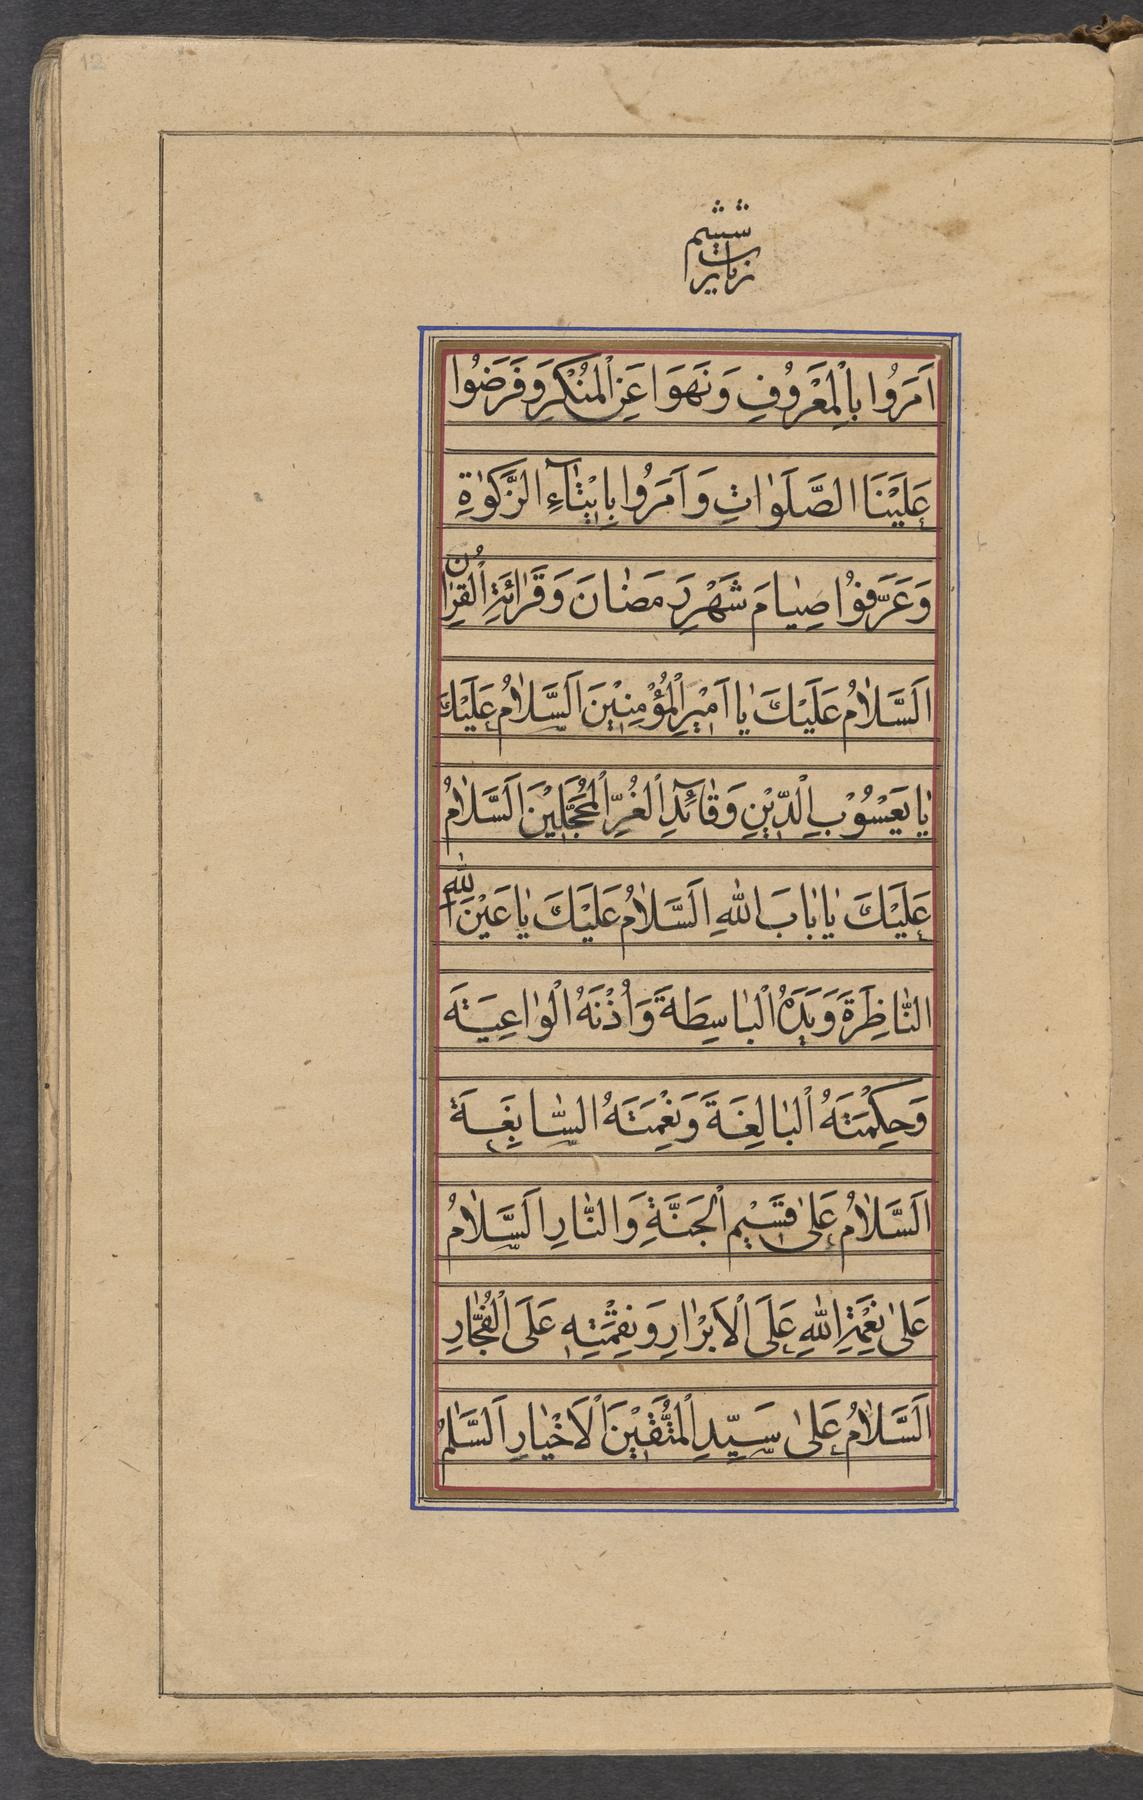 12
زیارت ششم
اَمَرُوا بِالْمَعْرُوفِ وَنَهَوَا عَنِ الْمُنْكَرِ وَفَرَضُوا
عَلَيْنَا الصَّلَوٰاتِ وَاَمَرُوا بِاِيْتٰآءِ الزَّكَوٰةِ
وَعَرَّفُوْا صِيٰامَ شَهْرِ رَمَضٰانَ وَقَرٰائَةِ الْقُرْاٰنِ
اَلسَّلاٰمُ عَلَيْكَ يٰا اَمِيْرِ الْمُؤْمِنِيْنَ اَلسَّلاٰمُ عَلَيْكَ
يٰا يَعْسُوْبِ الدِّيْنِ وَقٰآئِدِ الْغُرِّ الْمُحَجَّلِيْنَ اَلسَّلاٰمُ
عَلَيْكَ يٰا بٰابَ اللّٰهِ اَلسَّلاٰمُ عَلَيْكَ يٰا عَيْنَ اللّٰهِ
النّٰاظِرَةَ وَيَدَهُ الْبٰاسِطَةَ وَاُذْنَهُ الْوٰاعِيَتَه
وَحِكْمَتَهُ الْبٰالِغَةَ وَنِعْمَتَهُ السّٰابِغَةَ
اَلسَّلاٰمُ عَلىٰ قَسِيْمِ الْجَنَّةِ وَالنّٰارِ اَلسَّلاٰمُ
عَلىٰ نِعْمَةِ اللّٰهِ عَلَى الْاَبْرٰارِ وَنِقْمَتِهِ عَلَى الْفُجّٰارِ
اَلسَّلاٰمُ عَلىٰ سَيِّدِ الْمُتَّقِيْنَ الْاَخْيٰارِ اَلسَّلٰمُ